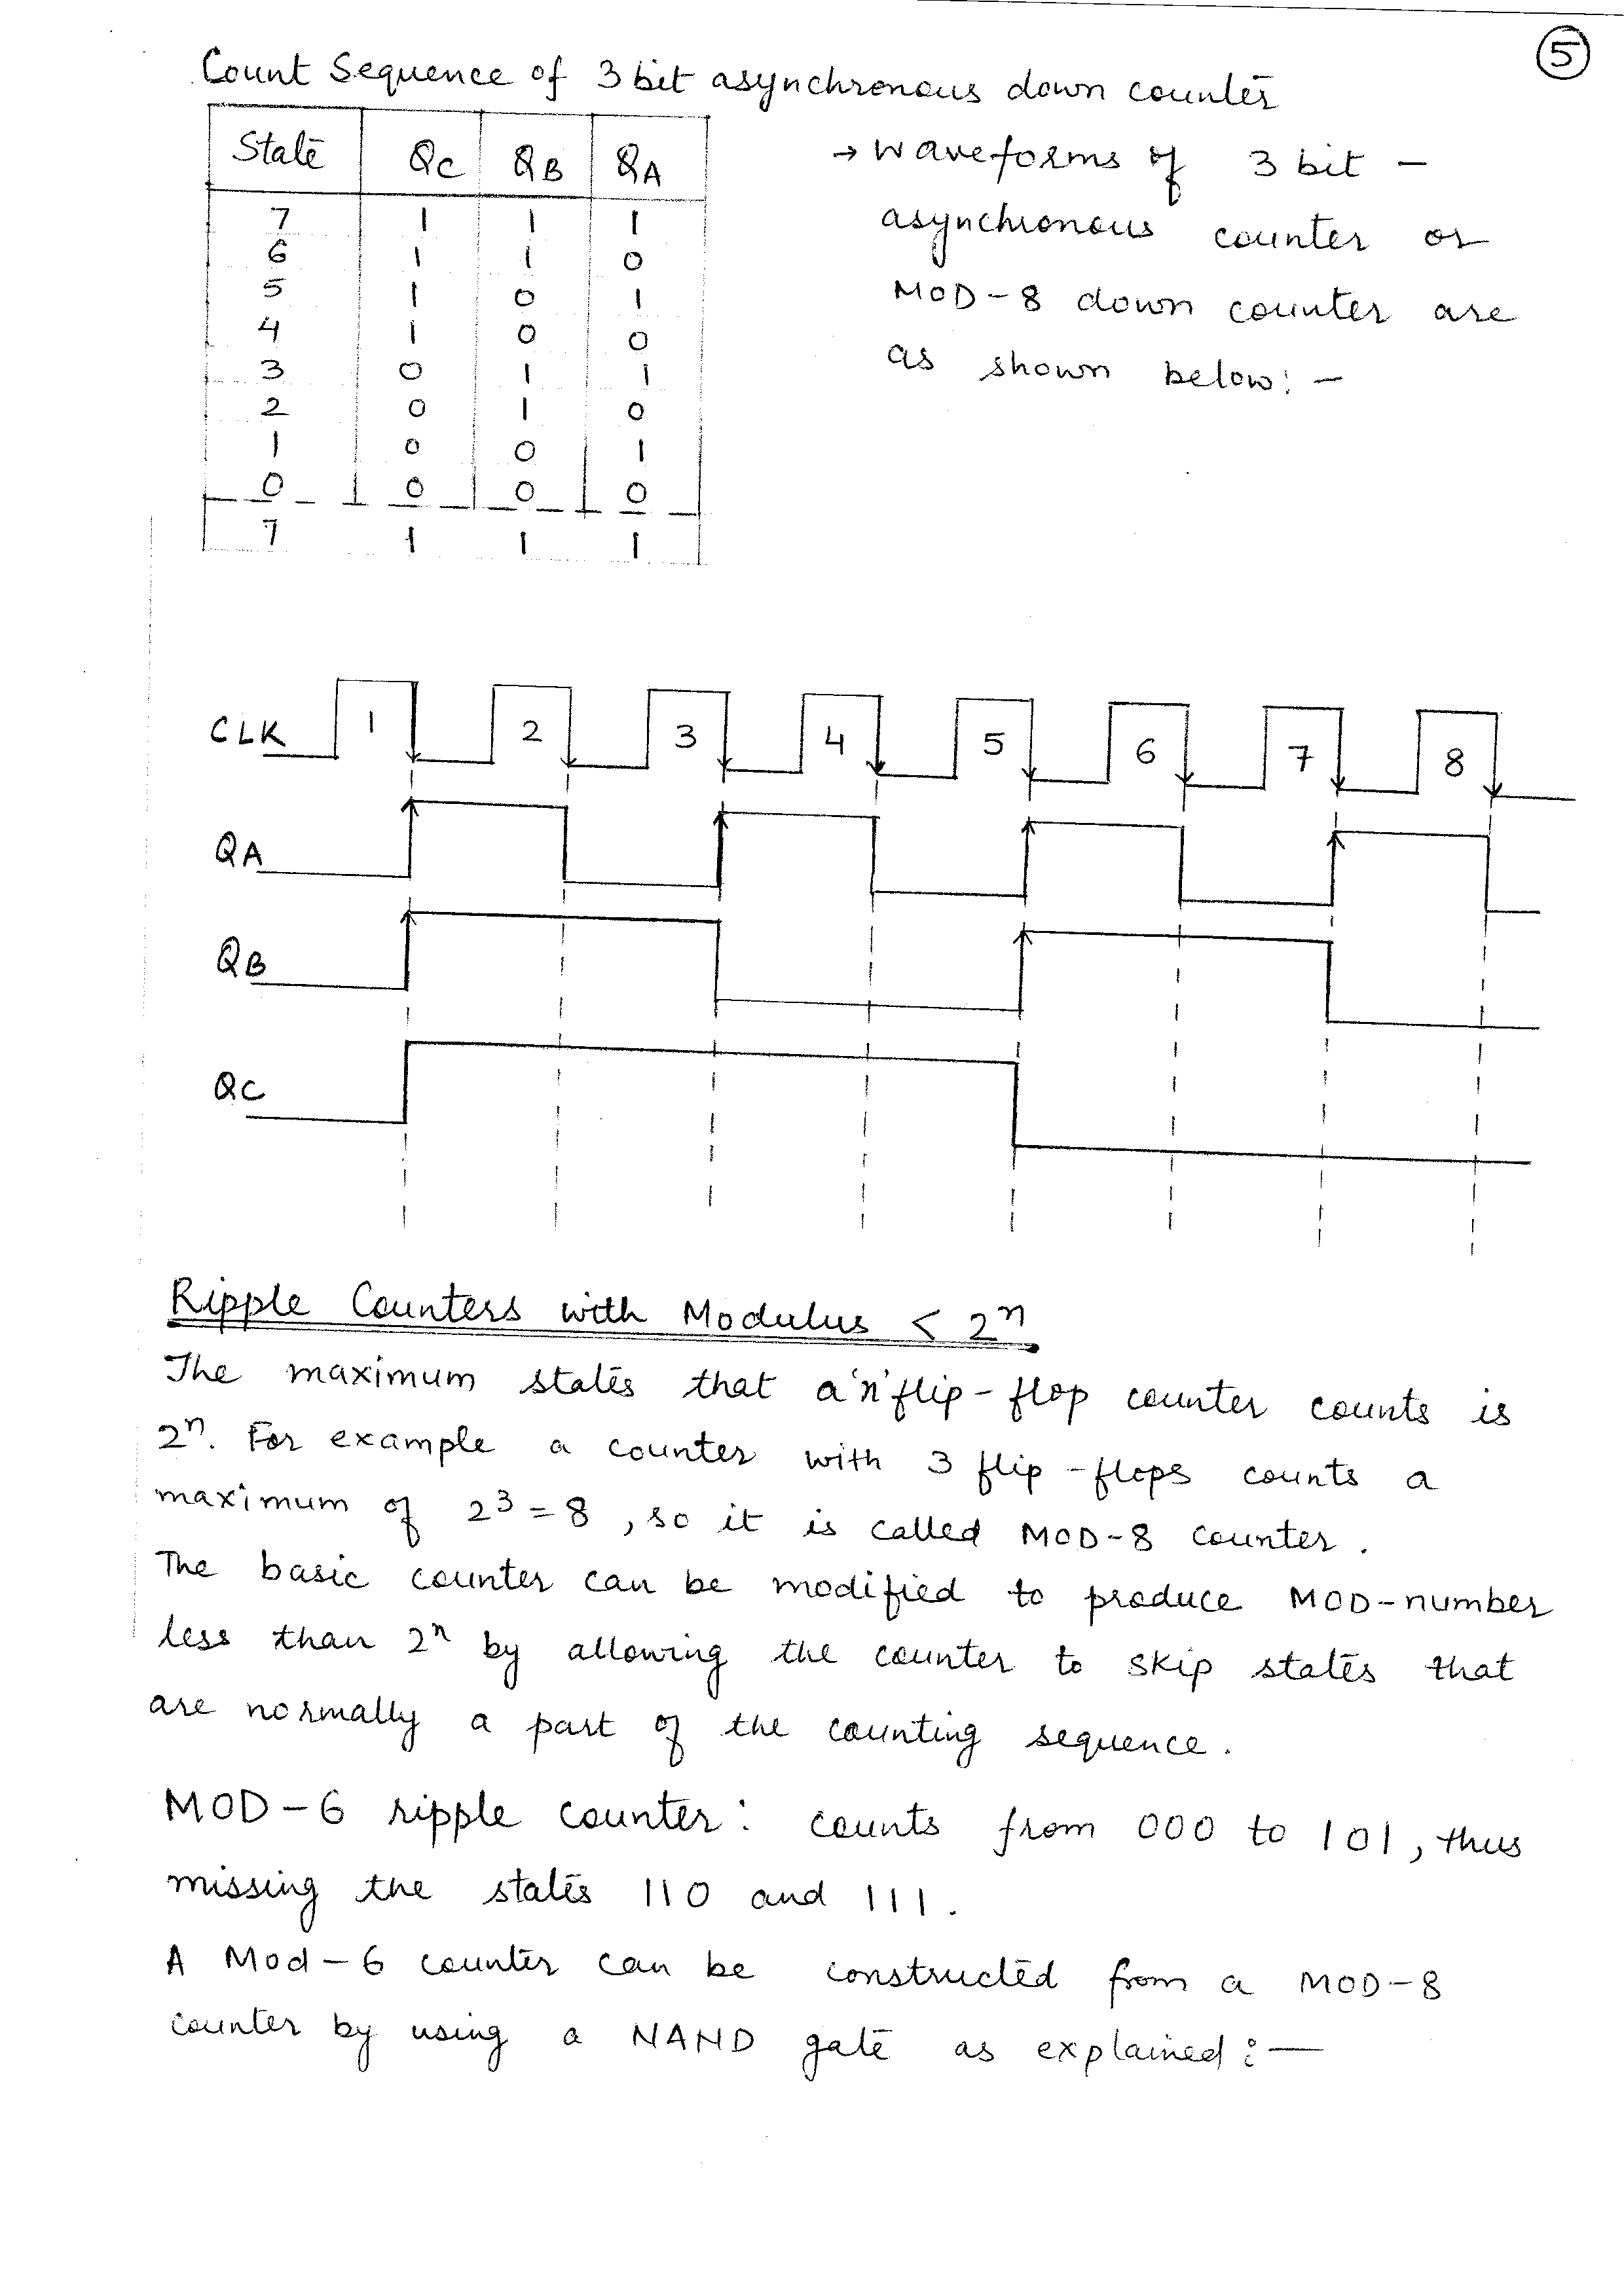 5
Count Sequence of 3 bit asynchronous down counter
State QC QB QA
7 1 1 1
6 1 1 0
5 1 0 1
4 1 0 0
3 0 1 1
2 0 1 0
1 0 0 1
0 0 0 0
7 1 1 1
→ waveforms of 3 bit -
asynchronous counter or
MOD-8 down counter are
as shown below:-
CLK 1 2 3 4 5 6 7 8
QA
QB
QC
Ripple Counters with Modulus < 2ⁿ
The maximum states that a 'n' flip-flop counter counts is
2ⁿ. For example a counter with 3 flip-flops counts a
maximum of 2³ = 8, so it is called MOD-8 counter.
The basic counter can be modified to produce MOD-number
less than 2ⁿ by allowing the counter to skip states that
are normally a part of the counting sequence.
MOD-6 ripple counter: counts from 000 to 101, thus
missing the states 110 and 111.
A Mod-6 counter can be constructed from a MOD-8
counter by using a NAND gate as explained:-